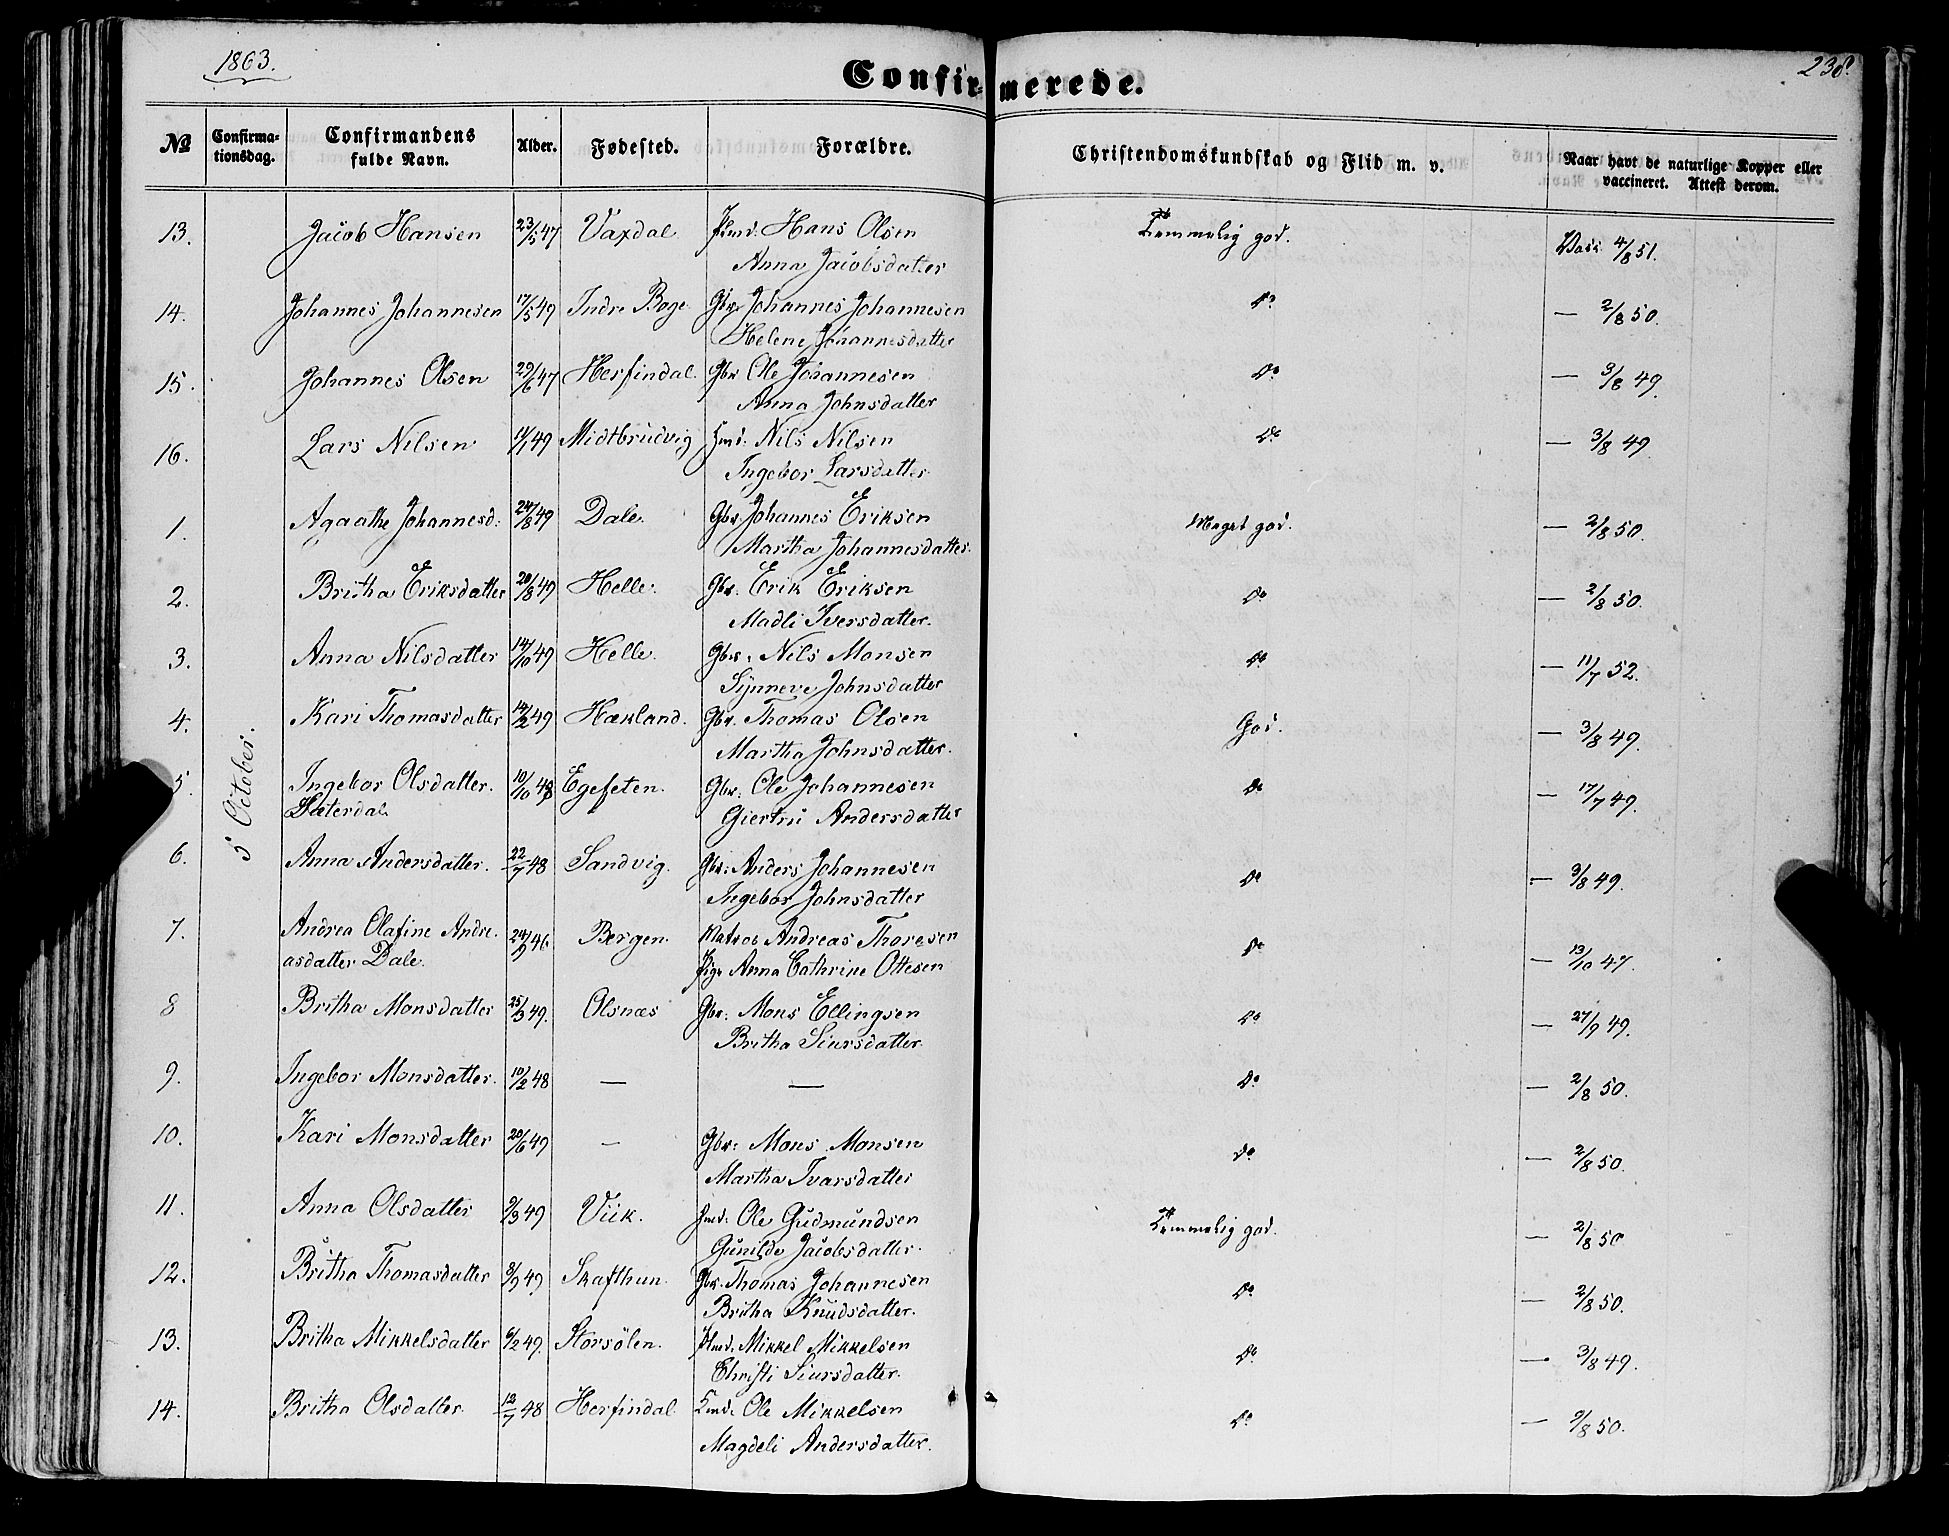 1863.
238.
Confirmerede.
№ Confirmationsdag. Confirmandens fulde Navn. Alder. Fødested. Forældre. Christendomskundskab og Flid m. v. Naar havt de naturlige Kopper eller vaccineret. Attest derom.
5 October.
13. Jacob Hansen 23/5 47 Vaxdal Hmd. Hans Olsen Temmelig god. Vacc. 4/8 51.
Anna Jacobsdatter
14. Johannes Johannesen 17/5 49 Indre Boge Gbr. Johannes Johannesen Do — 2/8 50.
Helene Johannesdatter
15. Johannes Olsen 29/6 47 Herfindal. Gbr. Ole Johannesen Do — 3/8 49.
Anna Johnsdatter
16. Lars Nilsen 11/1 49 Midtbrudvig Hmd. Nils Nilsen Do — 3/8 49.
Ingebor Larsdatter
1. Agaathe Johannesd: 24/8 49 Dale. Gbr. Johannes Eriksen Meget god. — 2/8 50.
Martha Johannesdatter.
2. Britha Eriksdatter 20/8 49 Helle. Gbr. Erik Eriksen Do — 2/8 50.
Madli Iversdatter.
3. Anna Nilsdatter 14/10 49 Helle. Gbr. Nils Monsen Do — 11/7 52.
Synneve Johnsdatter
4. Kari Thomasdatter 14/2 49 Hækland. Gbr. Thomas Olsen God. — 3/8 49.
Martha Johnsdatter.
5. Ingebor Olsdatter. 10/10 48 Egefeten. Gbr. Ole Johannesen Do — 17/7 49.
Sæterdal. Giertru Andersdatter
6. Anna Andersdatter. 22/7 48 Sandvig. Gbr: Anders Johannesen Do — 3/8 49.
Ingebor Johnsdatter
7. Andrea Olafine Andre- 24/9 46 Bergen. Matros Andreas Thoresen Do — 13/10 47.
asdatter Dale. Pige Anna Cathrine Ottesen
8 Britha Monsdatter 25/3 49. Olsnæs Gbr. Mons Ellingsen Do — 27/9 49.
Britha Siursdatter
9. Ingebor Monsdatter. 10/2 48 — — Do — 2/8 50.
10. Kari Monsdatter 20/6 49 — Gbr: Mons Monsen Do — 2/8 50.
Martha Ivarsdatter
11. Anna Olsdatter 9/3 49 Viik. Hmd. Ole Gudmundsen Temmelig god. — 2/8 50
Gunilde Jacobsdatter.
12. Britha Thomasdatter 8/9 49 Skafthun. Gbr. Thomas Johannesen Do — 2/8 50.
Britha Knudsdatter.
13. Britha Mikkelsdatter 6/2 49. Storsölen. Hmd. Mikkel Mikkelsen Do — 3/8 49.
Christi Siursdatter.
14. Britha Olsdatter 12/7 48 Herfindal Ole Mikkelsen Do — 9/8 50.
Magdeli Andersdatter.